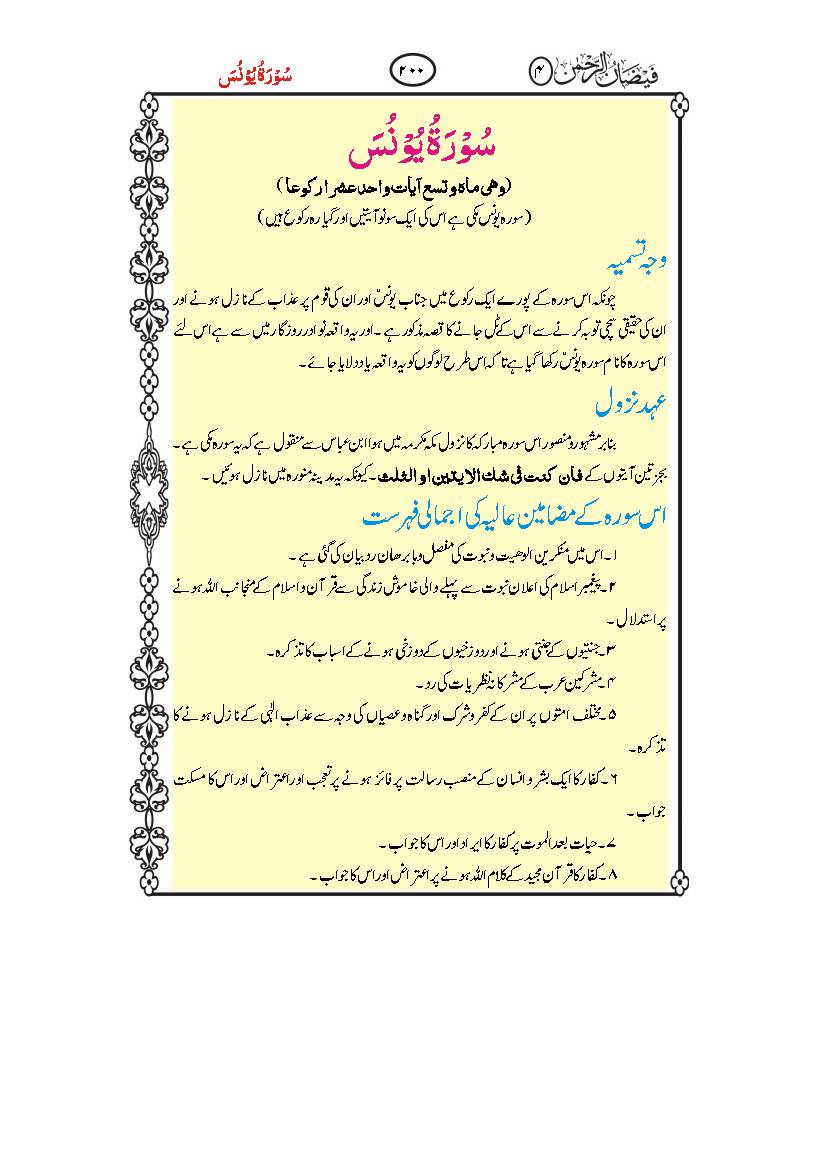 فیضان الرحمن ۴ ۲۰۰ سُوْرَۃُ یُوْنُسَ
سُوْرَۃُ یُوْنُسَ
(وھی ماۃ و تسع آیات واحد عشر ارکوعا)
(سورہ یونس مکی ہے اس کی ایک سو نو آیتیں اور گیارہ رکوع ہیں)
وجہ تسمیہ
چونکہ اس سورہ کے پورے ایک رکوع میں جناب یونسؑ اور ان کی قوم پر عذاب کے نازل ہونے اور
ان کی حقیقی سچی توبہ کرنے سے اس کے ٹل جانے کا قصہ مذکور ہے۔ اور یہ واقعہ نوادر روزگار میں سے ہے اس لئے
اس سورہ کا نام سورہ یونسؑ رکھا گیا ہے تاکہ اس طرح لوگوں کو یہ واقعہ یاد دلایا جائے۔
عہد نزول
بنابر مشہور و منصور اس سورہ مبارکہ کا نزول مکہ مکرمہ میں ہوا ابن عباس سے منقول ہے کہ یہ سورہ مکی ہے۔
بجز تین آیتوں کے فان کنت فی شك الایتین او الثلث۔ کیونکہ یہ مدینہ منورہ میں نازل ہوئیں۔
اس سورہ کے مضامین عالیہ کی اجمالی فہرست
۱۔ اس میں منکرین الوھیت و نبوت کی مفصل و با برھان رد بیان کی گئی ہے۔
۲۔ پیغمبر اسلام کی اعلان نبوت سے پہلے والی خاموش زندگی سے قرآن و اسلام کے منجانب اللہ ہونے
پر استدلال۔
۳۔ جنتیوں کے جنتی ہونے اور دوزخیوں کے دوزخی ہونے کے اسباب کا تذکرہ۔
۴۔ مشرکین عرب کے مشرکانہ نظریات کی رد۔
۵۔ مختلف امتوں پر ان کے کفر و شرک اور گناہ و عصیاں کی وجہ سے عذاب الٰہی کے نازل ہونے کا
تذکرہ۔
۶۔ کفار کا ایک بشر و انسان کے منصب رسالت پر فائز ہونے پر تعجب اور اعتراض اور اس کا مسکت
جواب۔
۷۔ حیات بعد الموت پر کفار کا ایراد اور اس کا جواب۔
۸۔ کفار کا قرآن مجید کے کلام اللہ ہونے پر اعتراض اور اس کا جواب۔